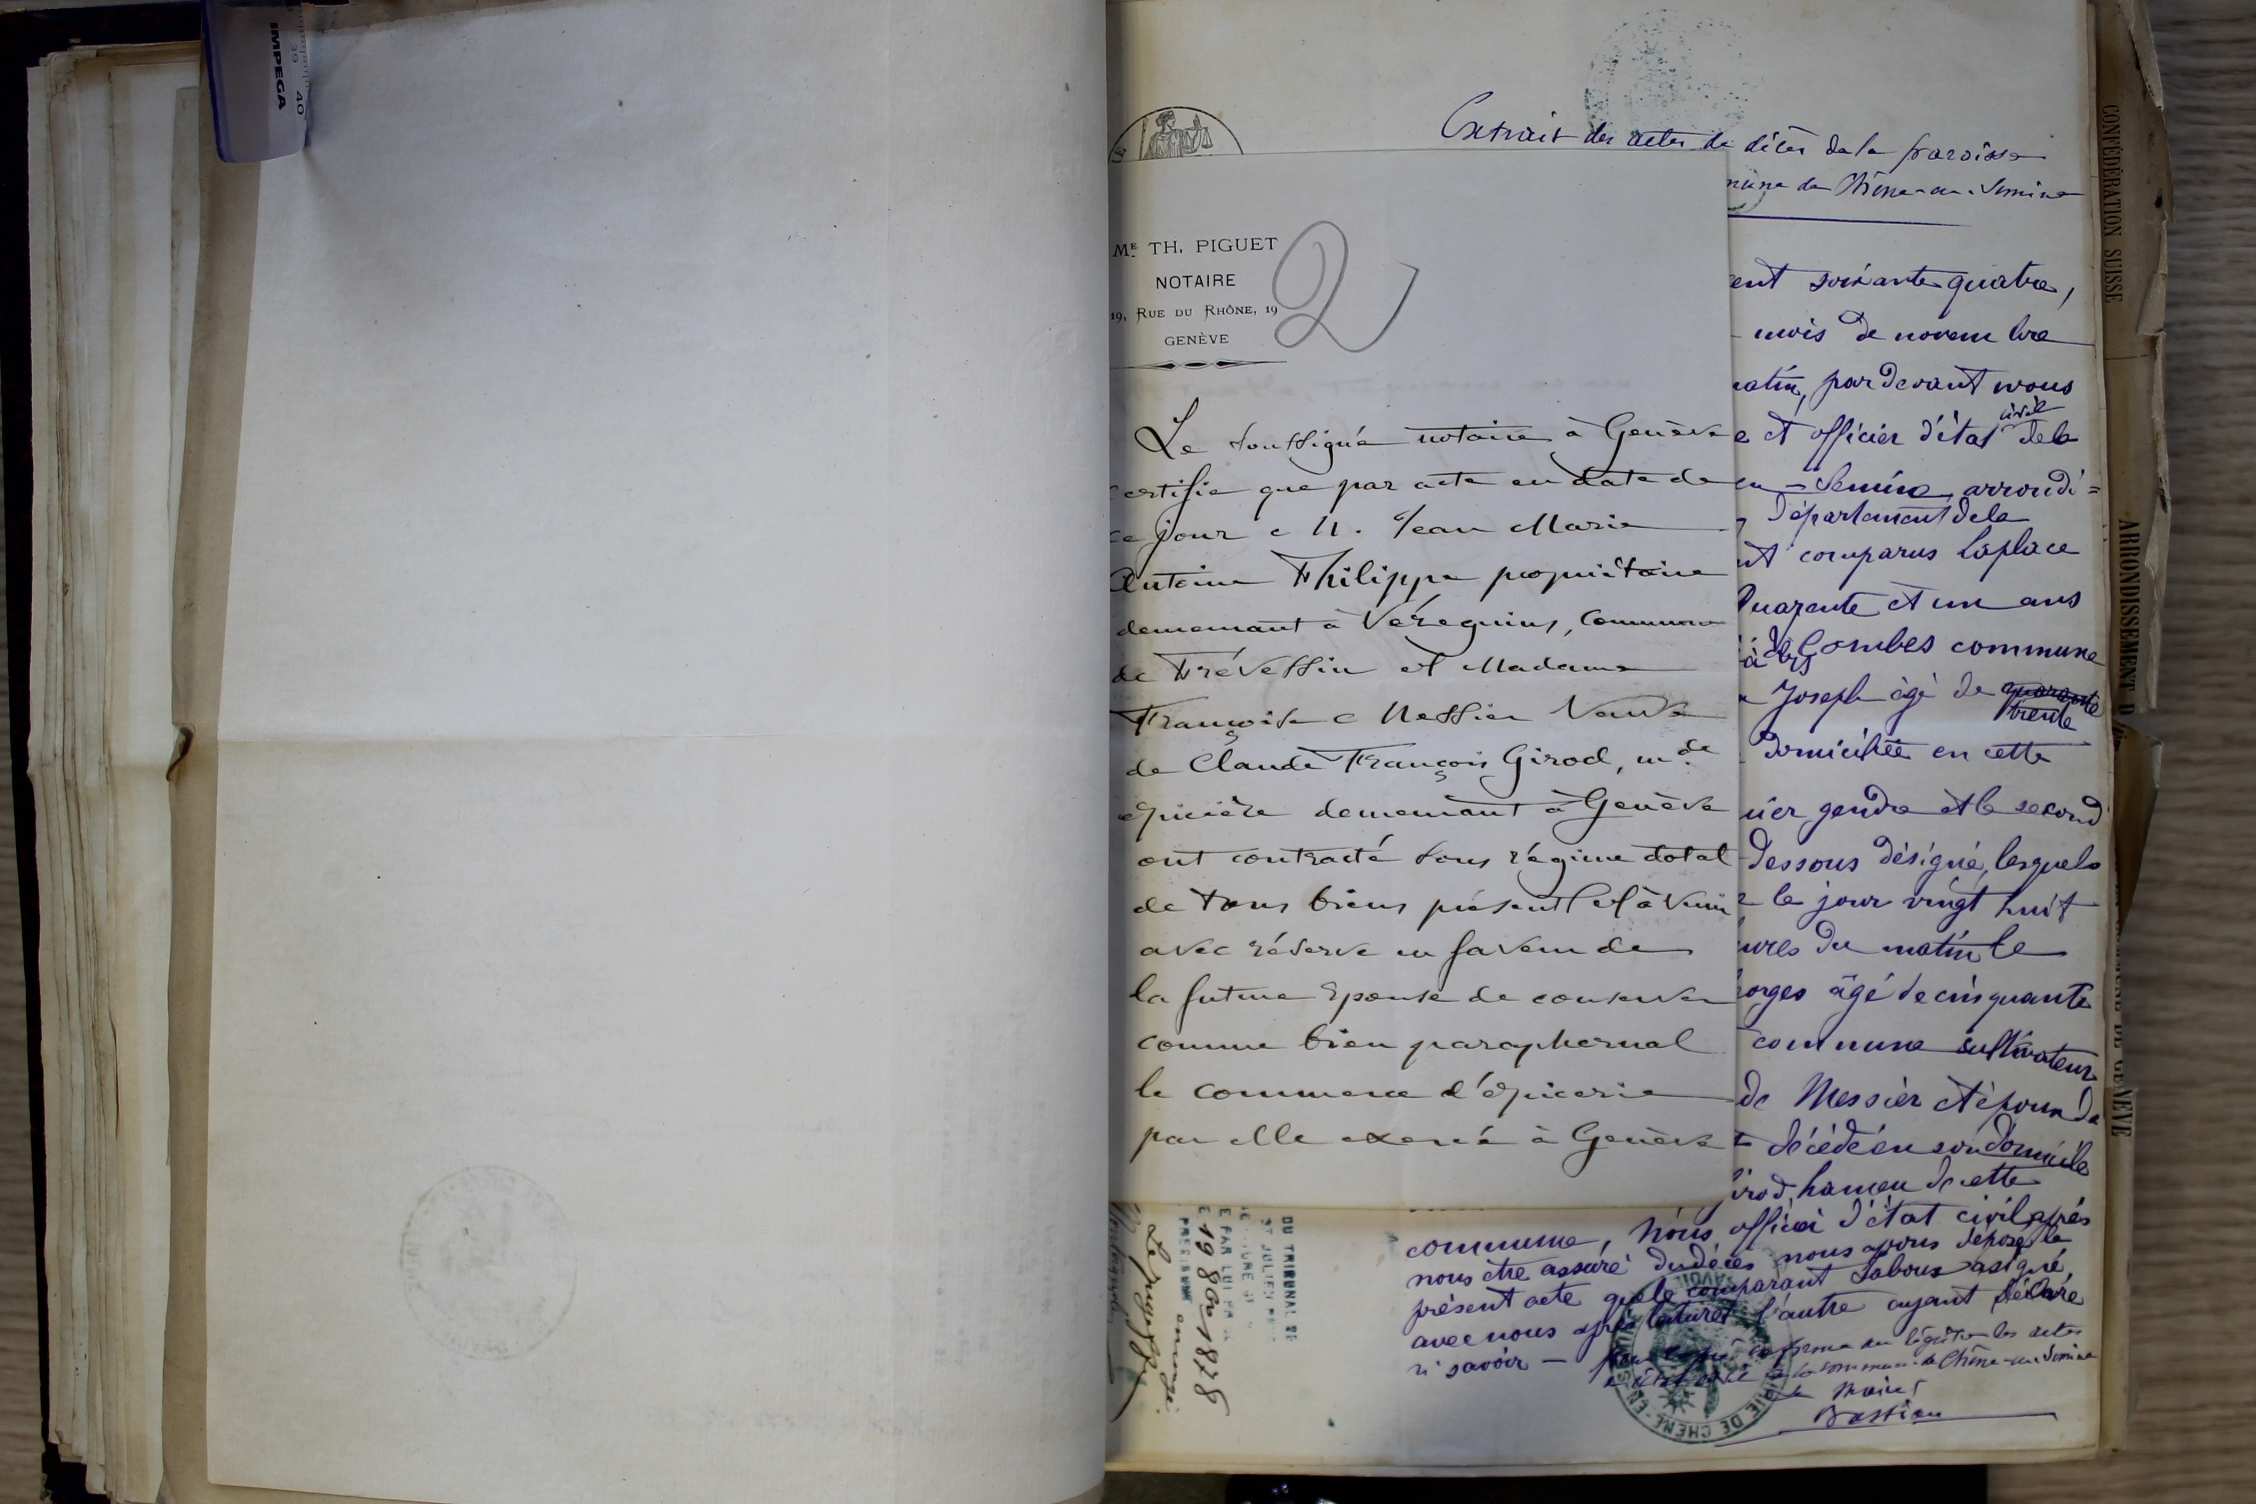 IMPEGA
39 40
Extrait des actes de décès de la paroisse
mune de Chêne-en-Semine
Me TH. PIGUET
NOTAIRE
19, RUE DU RHÔNE, 19
GENÈVE
2
Le soussigné notaire à Genève
certifie que par acte en date de
ce jour M. Jean Marie
Antoine Philippe propriétaire
demeurant à Véregnins, commune
de Prévessin et Madame
Françoise Messier Veuve
de Claude François Girod, mde
épicière demeurant à Genève
ont contracté sous régime dotal
de tous biens présents et à venir
avec réserve en faveur de
la future épouse de conserver
comme bien paraphernal
le commerce d'épicerie
par elle exercé à Genève
ent soixante quatre,
mois de novembre
matin, pardevant nous
e et officier d'état civil de la
en-Semine, arrondi=
département de la
nt comparus Laplace
Quarante et un ans
à des Combes commune
Joseph âgé de quarante
trente
domiciliée en cette
mier gendre et le second
dessous désigné, lesquels
le jour vingt huit
ures du matin le
orges âgé de cinquante
commune cultivateur
de Messier et époux de
décédé en son domicile
irod, hameau de cette
commune, Nous officier d'état civil après
nous être assuré du décès nous avons déposé le
présent acte que le comparant Sabous a signé
avec nous après lecture et l'autre ayant déclaré
ni savoir — Pour copie conforme au registre des actes
de l'état civil de la commune de Chêne-en-Semine
Le Maire
Bastian
MAIRIE DE CHÊNE-EN-SEMINE
SAVOIE
DU TRIBUNAL DE
ST JULIEN
E PAR LUI
19 8bre 1878
Le juge
CONFÉDÉRATION SUISSE
ARRONDISSEMENT D
DE GENÈVE